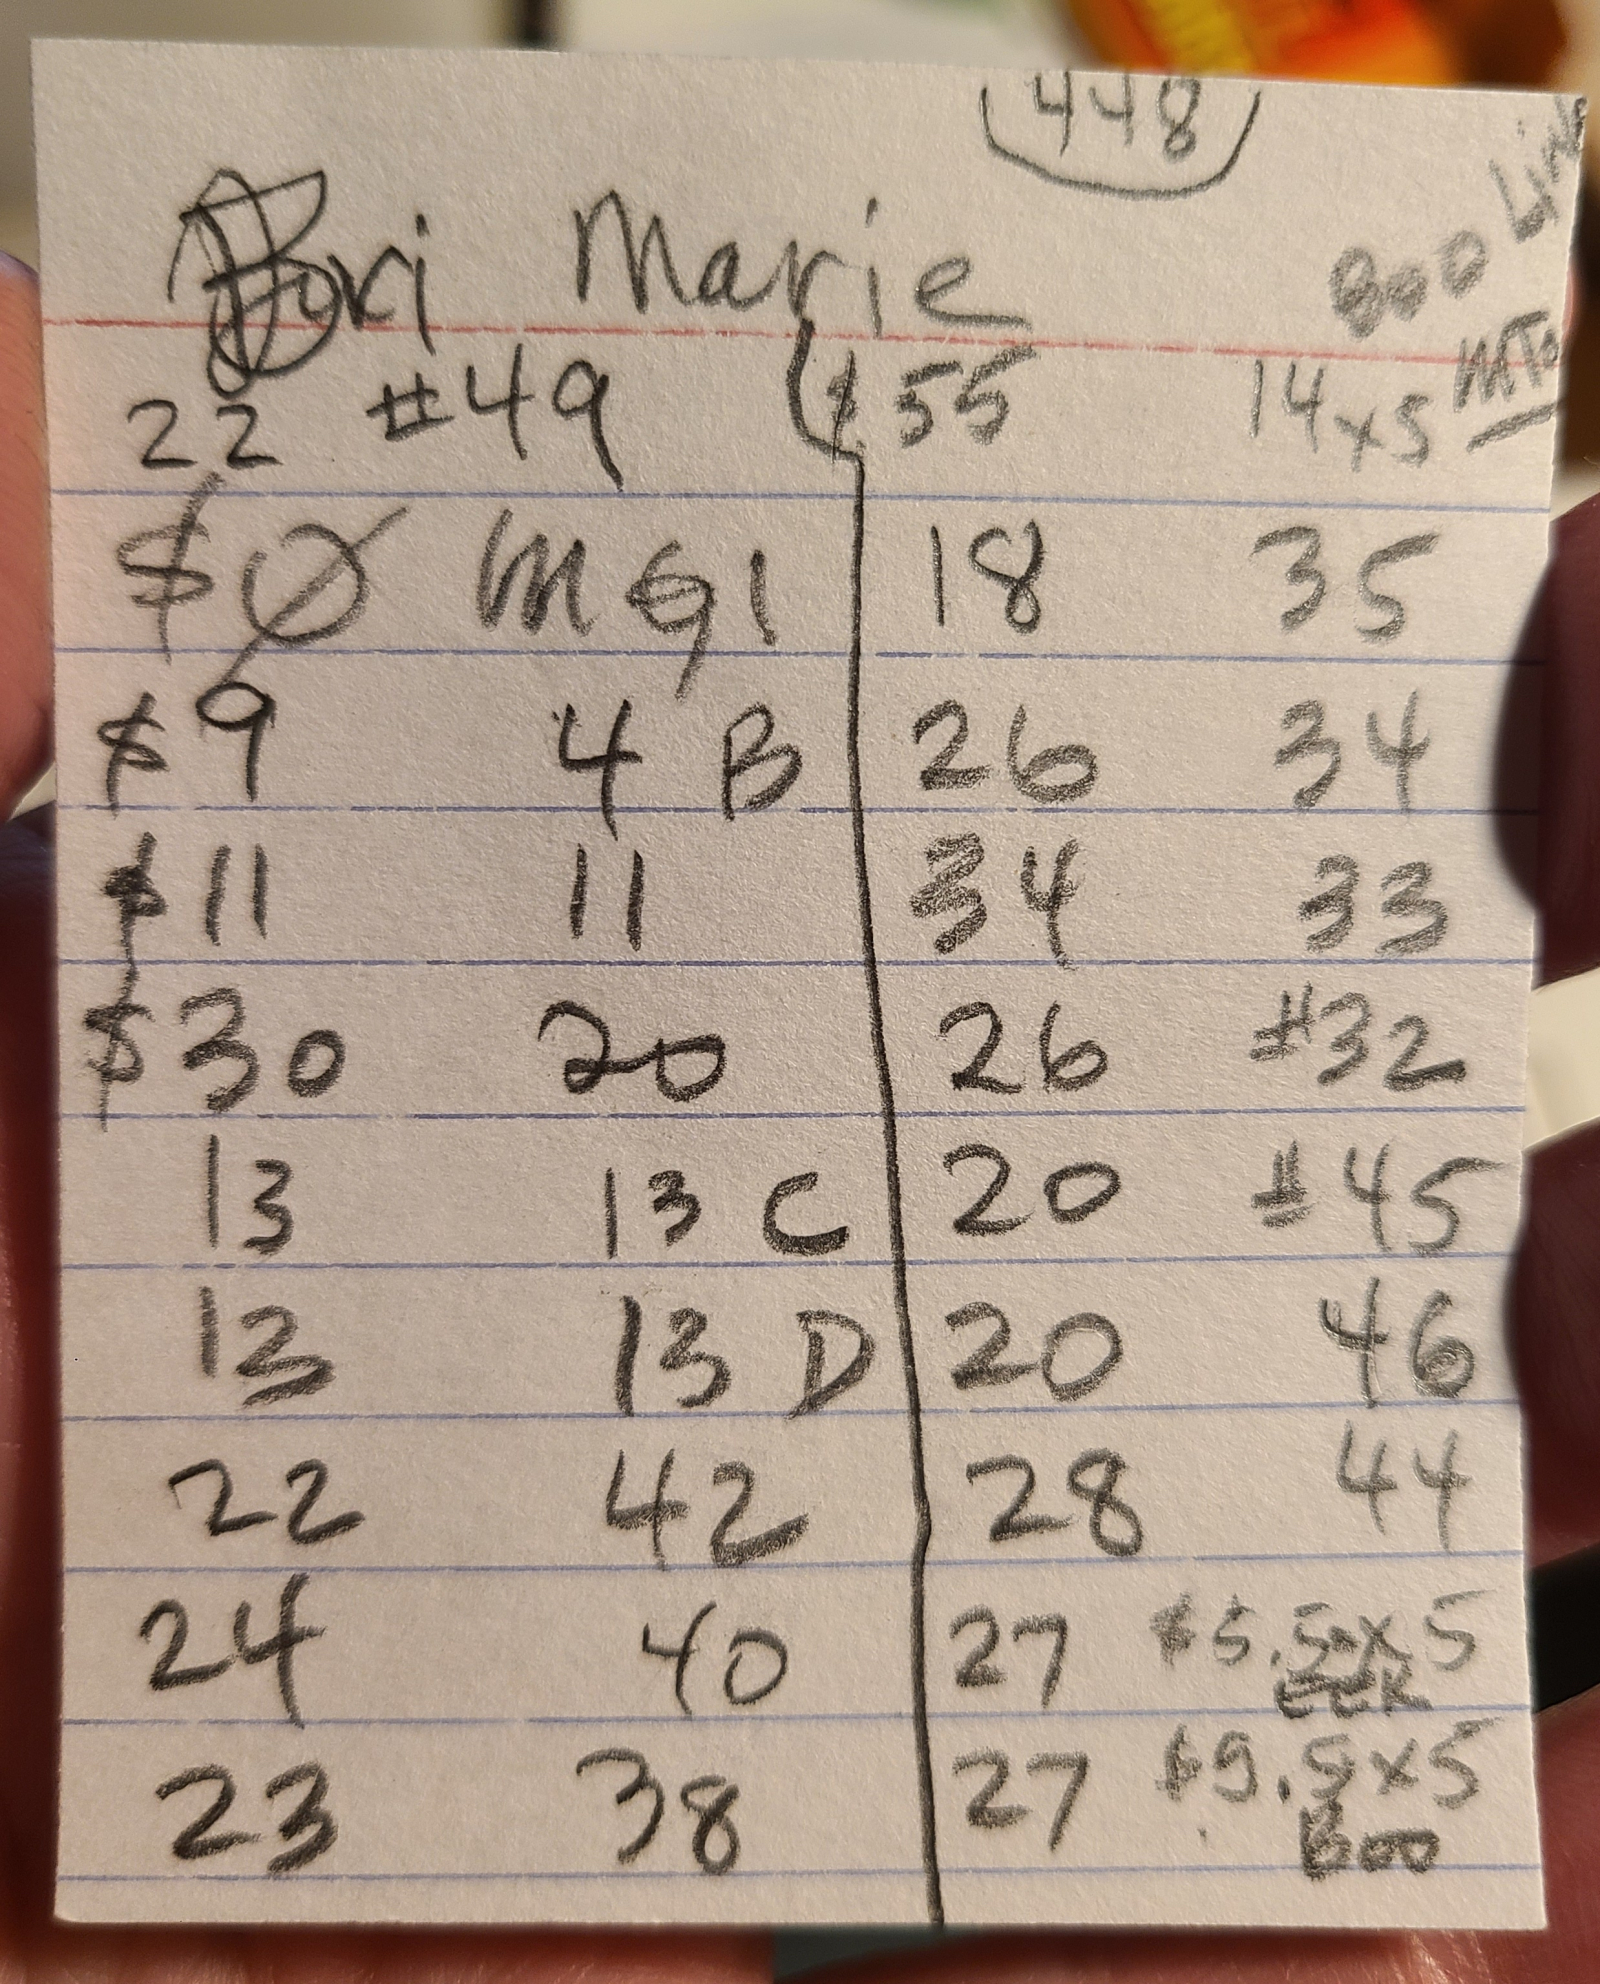 448
Marie
Boo Line
22 #49 $55 14x5 MTo
$0 MG1 18 35
$9 4 B 26 34
$11 11 34 33
$30 20 26 #32
13 13 C 20 #45
13 13 D 20 46
22 42 28 44
24 40 27 $5.50x5
EEK
23 38 27 $9.5x5
Boo